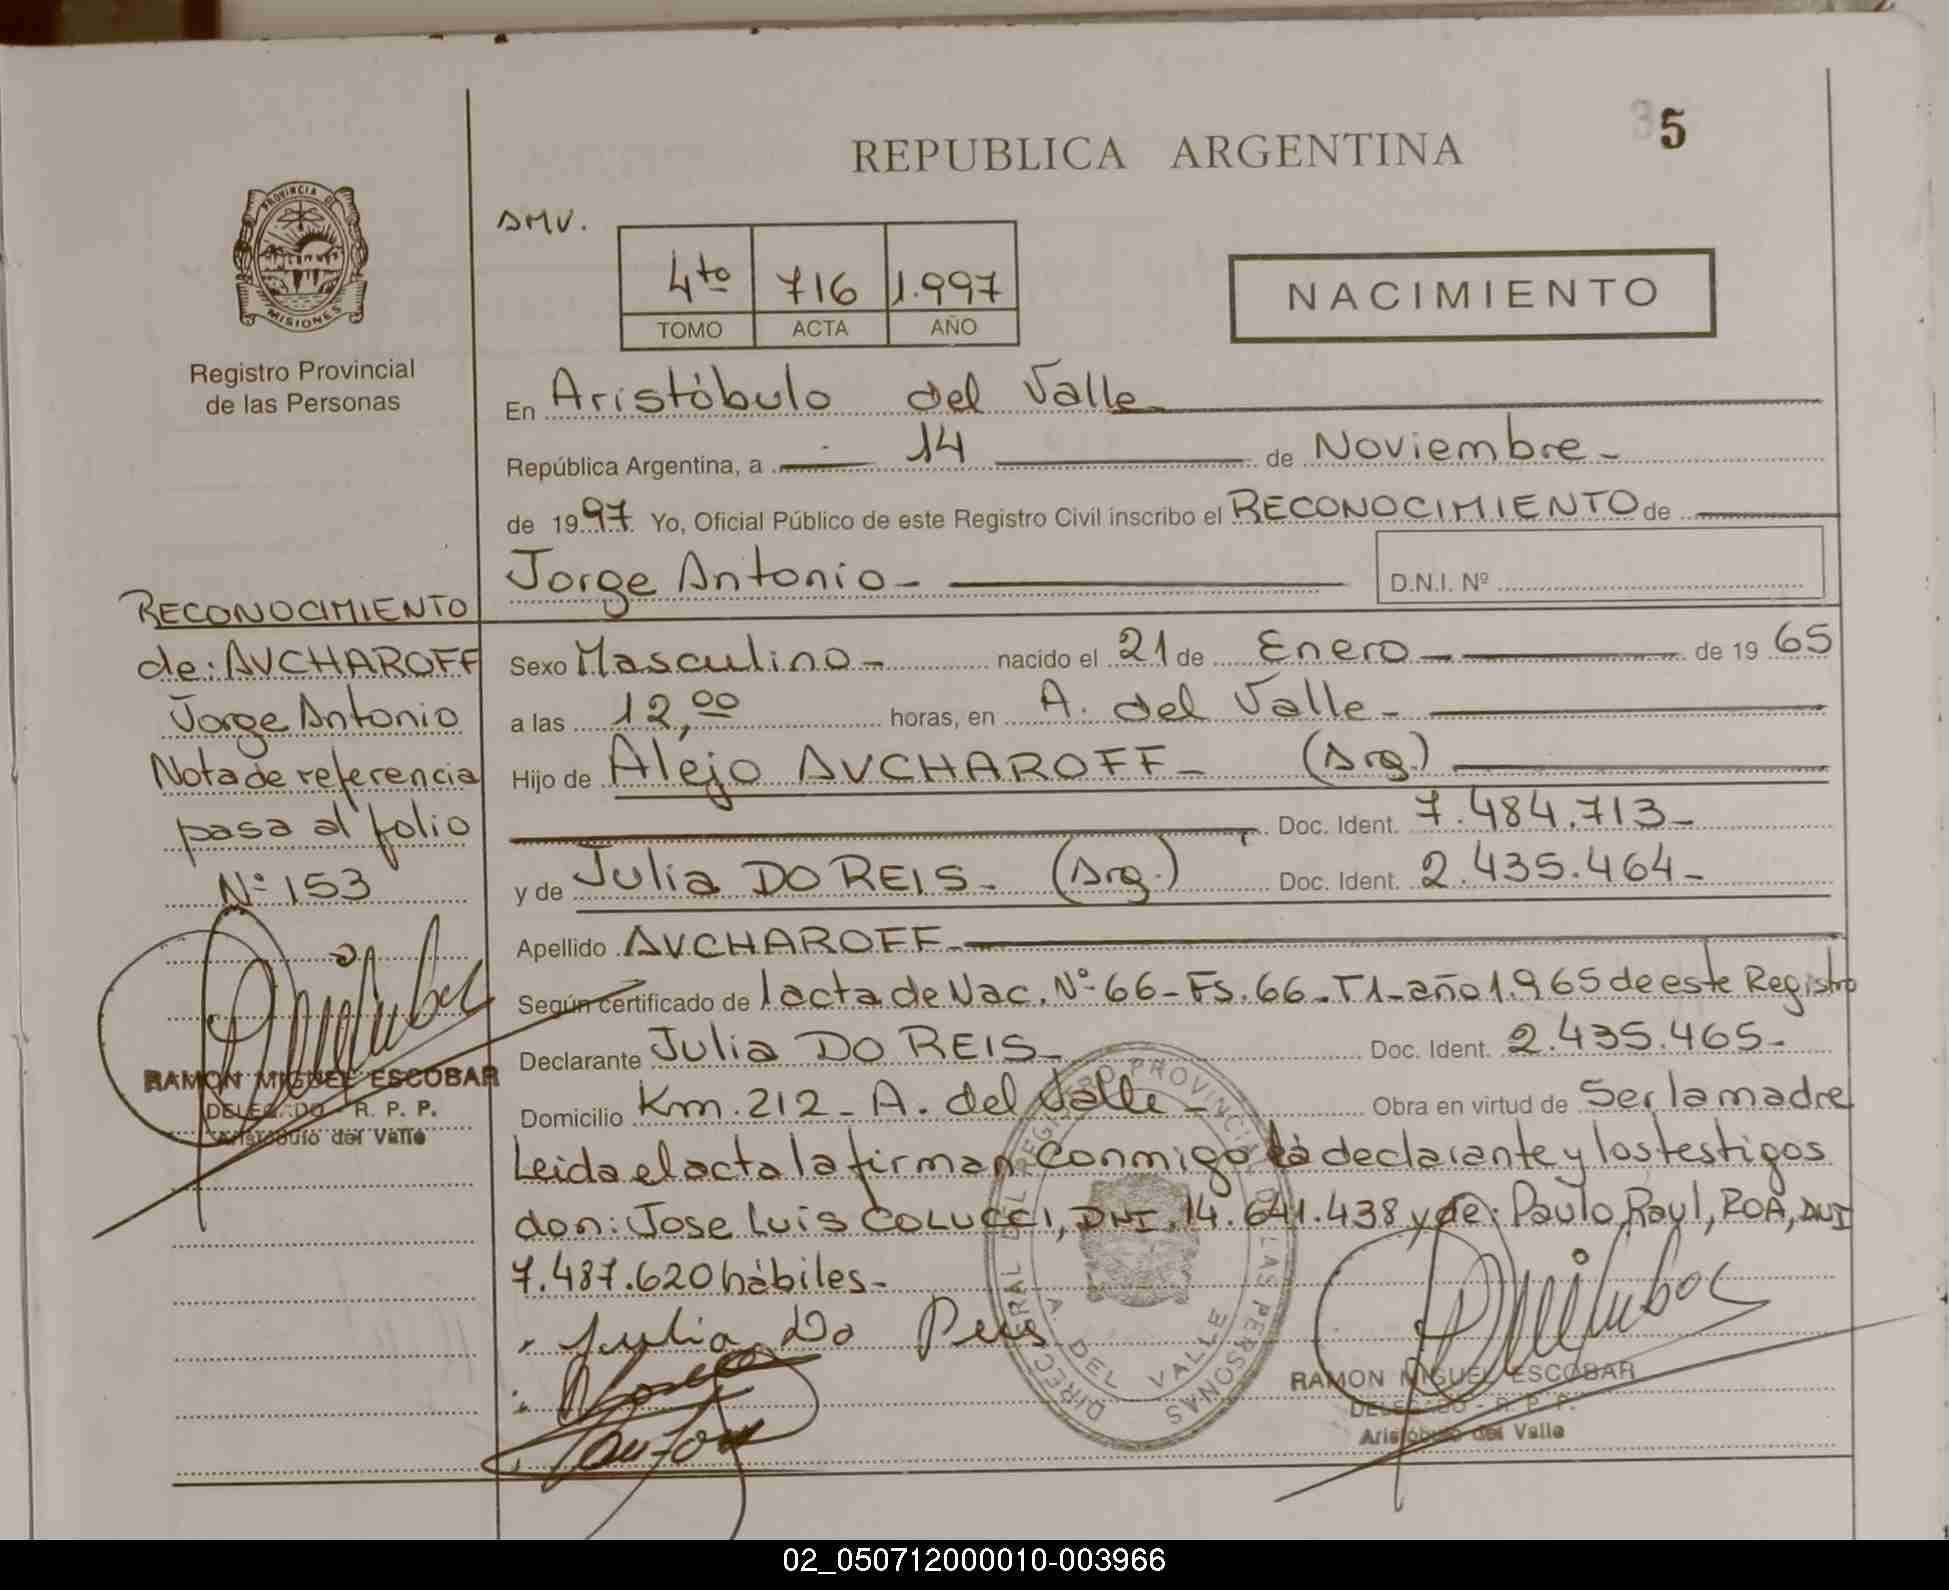 35
REPUBLICA ARGENTINA
PROVINCIA DE
MISIONES
Registro Provincial
de las Personas
AMV.
4to 716 1.997
TOMO ACTA AÑO
NACIMIENTO
En Aristóbulo del Valle
República Argentina, a 14 de Noviembre
de 1997 Yo, Oficial Público de este Registro Civil inscribo el RECONOCIMIENTO de
Jorge Antonio
D.N.I. Nº
RECONOCIMIENTO
de: AVCHAROFF
Jorge Antonio
Nota de referencia
pasa al folio
Nº 153
RAMON MIGUEL ESCOBAR
DELEGADO - R. P. P.
Aristóbulo del Valle
Sexo Masculino nacido el 21 de Enero de 1965
a las 12,00 horas, en A. del Valle
Hijo de Alejo AVCHAROFF (Arg.)
Doc. Ident. 7.484.713
y de Julia DO REIS (Arg.) Doc. Ident. 2.435.464
Apellido AVCHAROFF
Según certificado de / acta de Nac. Nº 66 - Fs. 66 - T1 - año 1.965 de este Registro
Declarante Julia DO REIS Doc. Ident. 2.435.465
Domicilio Km. 212 - A. del Valle Obra en virtud de Ser la madre
Leida el acta la firman conmigo la declarante y los testigos
don: Jose Luis COLUCCI, DNI. 14.641.438 y de: Paulo Raul, ROA, DNI
7.487.620 hábiles
Julia Do Reis
DIRECC GRAL DEL REGISTRO PROVINCIAL DE LAS PERSONAS
A. DEL VALLE
RAMON MIGUEL ESCOBAR
DELEGADO - R. P. P.
Aristóbulo del Valle
02_050712000010-003966